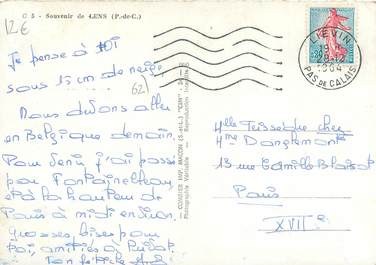 12€
C 5 - Souvenir de LENS (P.-de-C.)
Je pense à toi
sous 15 cm de neige
62)
Nous allons
en Belgique demain.
Pour venir j'ai passé
par Fontainebleau
et à la hauteur de
Paris à midi environ
grosses bises pour
toi, amitiés à
COMBIER IMP. MACON (S.-et-L.) "CIM"
Photographie Véritable - Reproduction Interdite
LIEVIN
29-12
1964
PAS DE CALAIS
Melle Teisseque chez
Mme
13 rue Camille Blaisot
Paris
XVIIe